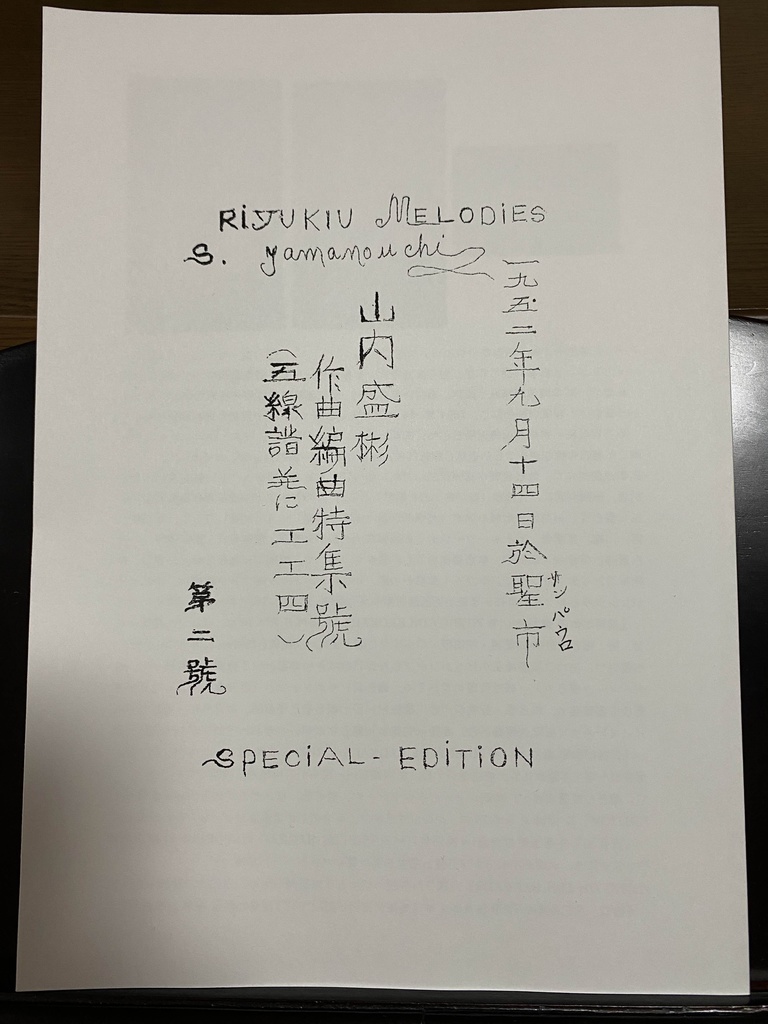 RiJUKIU MELODiES
S. yamanouchi
一九五二年九月十四日於聖市
サンパウロ
山内盛彬
作曲編曲特集號
（五線譜並に工工四）
第二號
SPECiAL - EDiTiON